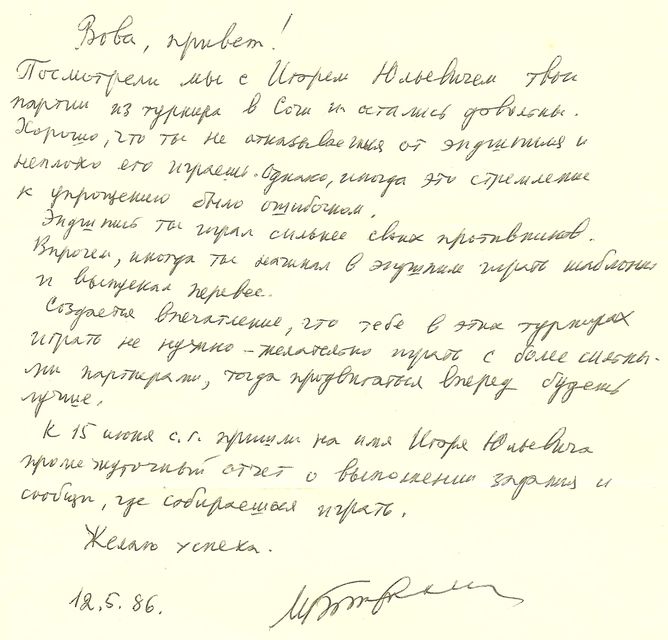 Вова, привет!
Посмотрели мы с Игорем Юльевичем твои
партии из турнира в Сочи и остались довольны.
Хорошо, что ты не отказываешься от эндшпиля и
неплохо его играешь. Однако, иногда это стремление
к упрощению было ошибочном.
Эндшпиль ты играл сильнее своих противников.
Впрочем, иногда ты начинал в эндшпиле играть шаблонно
и выпускал перевес.
Создается впечатление, что тебе в этих турнирах
играть не нужно – желательно играть с более сильны-
ми партнерами, тогда продвигаться вперед будешь
лучше.
К 15 июня с.г. пришли на имя Игоря Юльевича
промежуточный отчет о выполнении задания и
сообщи, где собираешься играть.
Желаю успеха.
12.5.86.